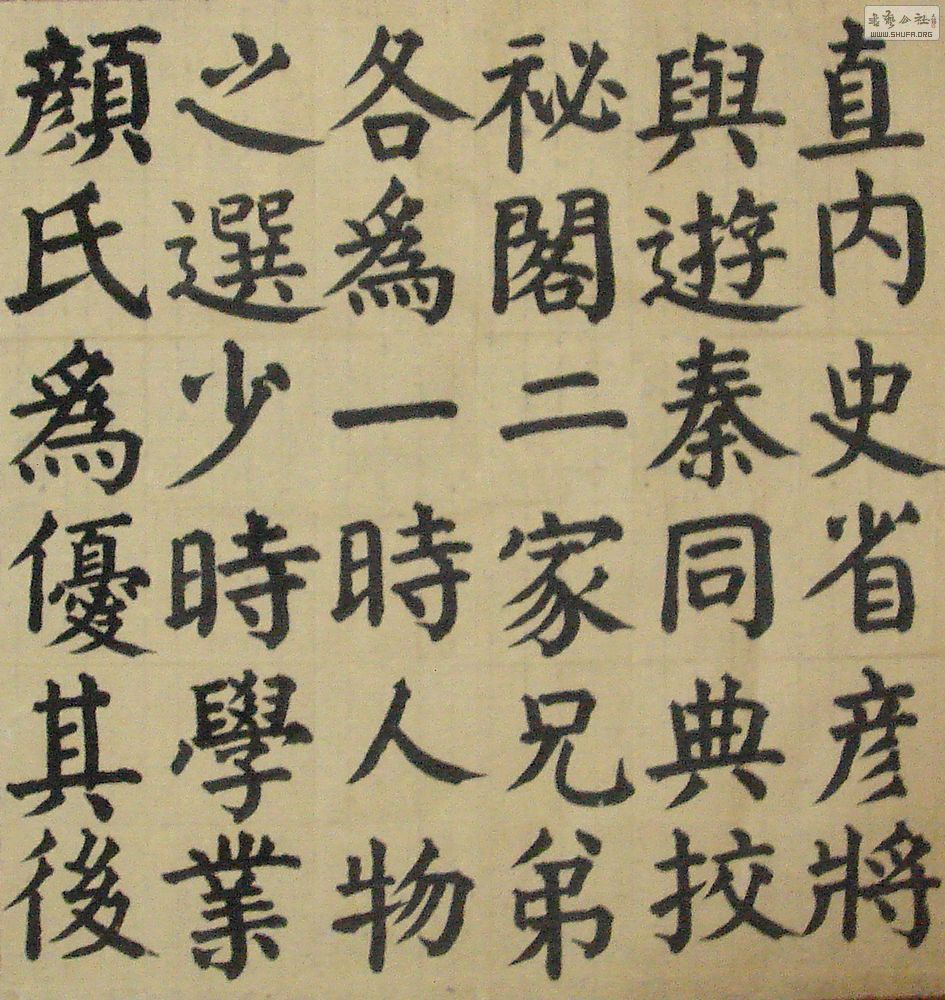 直内史省彦將
與遊秦同典挍
祕閣二家兄弟
各為一時人物
之選少時學業
顔氏為優其後
WWW.SHUFA.ORG